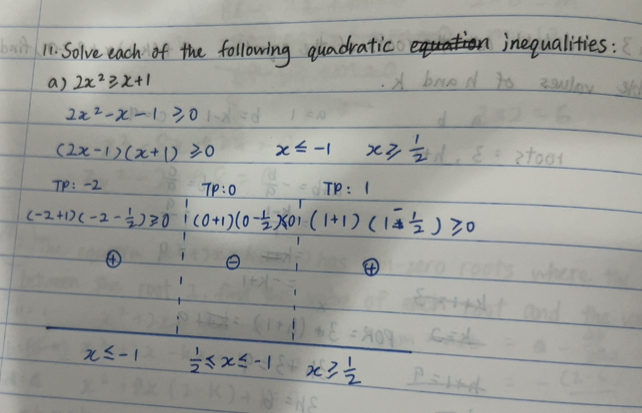 11. Solve each of the following quadratic equation inequalities:
a) 2x² ≥ x+1
2x² - x - 1 ≥ 0
(2x-1)(x+1) ≥ 0 x ≤ -1 x ≥ 1/2
TP: -2 TP: 0 TP: 1
(-2+1)(-2-1/2) ≥ 0 (0+1)(0-1/2) ≤ 0 (1+1)(1-1/2) ≥ 0
⊕ ⊖ ⊕
x ≤ -1 1/2 ≤ x ≤ -1 x ≥ 1/2